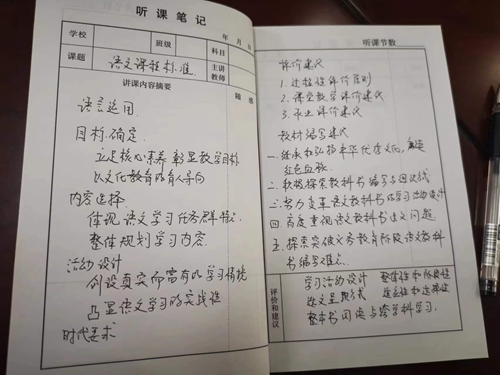 听课笔记
年 月 日
学校 班级 科目
课题 语文课程标准 主讲教师
讲课内容摘要 随感
语言运用
目标确定
立足核心素养 彰显教学目标
以文化教育的育人导向
内容选择
体现语文学习任务群特点
整体规划学习内容
活动设计
创设真实而富有的学习情境
凸显语文学习的实践性
时代要求
听课节数
评价建议
1.过程性评价原则
2.课堂教学评价建议
3.作业评价建议
教材编写建议
一.继承和弘扬中华优秀文化,
红色血脉
2.积极探索教科书编写与
三.努力变革语文教科书的学习活动设计
四 高度重视语文教科书 问题
五.探索突破义务教育阶段语文教科
书编写难点
评价和建议
学习活动设计 整体性和阶段性
语文呈现方式 连续性和
整本书阅读与跨学科学习.